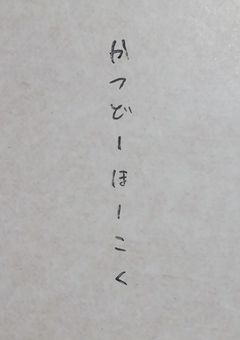 かつどーほーこく